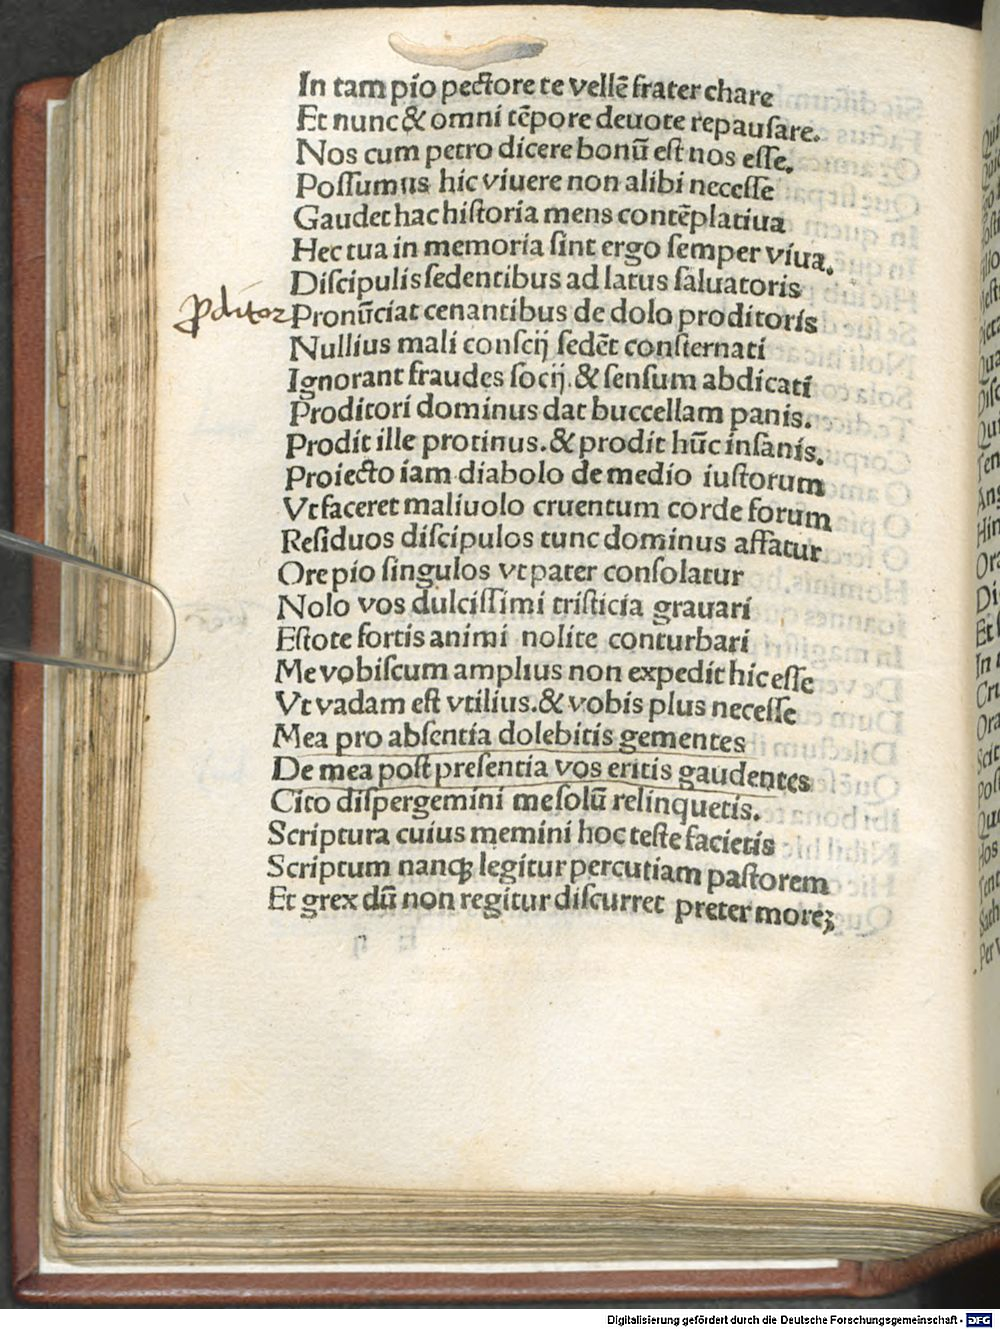 In tam pio pectore te vellē frater chare
Et nunc & omni tēpore deuote repausare.
Nos cum petro dicere bonū est nos esse.
Possumus hic viuere non alibi necesse
Gaudet hac historia mens contēplatiua
Hec tua in memoria sint ergo semper viua.
Discipulis sedentibus ad latus saluatoris
ꝓditor
Pronūciat cenantibus de dolo proditoris
Nullius mali conscij sedēt consternati
Ignorant fraudes socij. & sensum abdicati
Proditori dominus dat buccellam panis.
Prodit ille protinus. & prodit hūc insanis.
Proiecto iam diabolo de medio iustorum
Vt faceret maliuolo cruentum corde forum
Residuos discipulos tunc dominus affatur
Ore pio singulos vt pater consolatur
Nolo vos dulcissimi tristicia grauari
Estote fortis animi nolite conturbari
Me vobiscum amplius non expedit hic esse
Vt vadam est vtilius. & vobis plus necesse
Mea pro absentia dolebitis gementes
De mea post presentia vos eritis gaudentes
Cito dispergemini me solū relinquetis.
Scriptura cuius memini hoc teste facietis
Scriptum nanqꝫ legitur percutiam pastorem
Et grex dū non regitur discurret preter moreꝫ
Digitalisierung gefördert durch die Deutsche Forschungsgemeinschaft - DFG